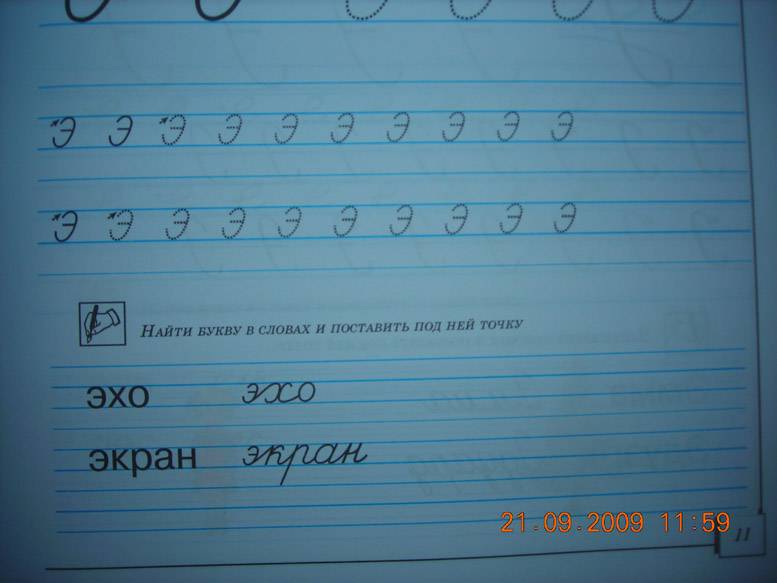 Э Э Э Э Э Э Э Э Э Э
Э Э Э Э Э Э Э Э Э Э
Найти букву в словах и поставить под ней точку
эхо эхо
экран экран
21.09.2009 11:59
11